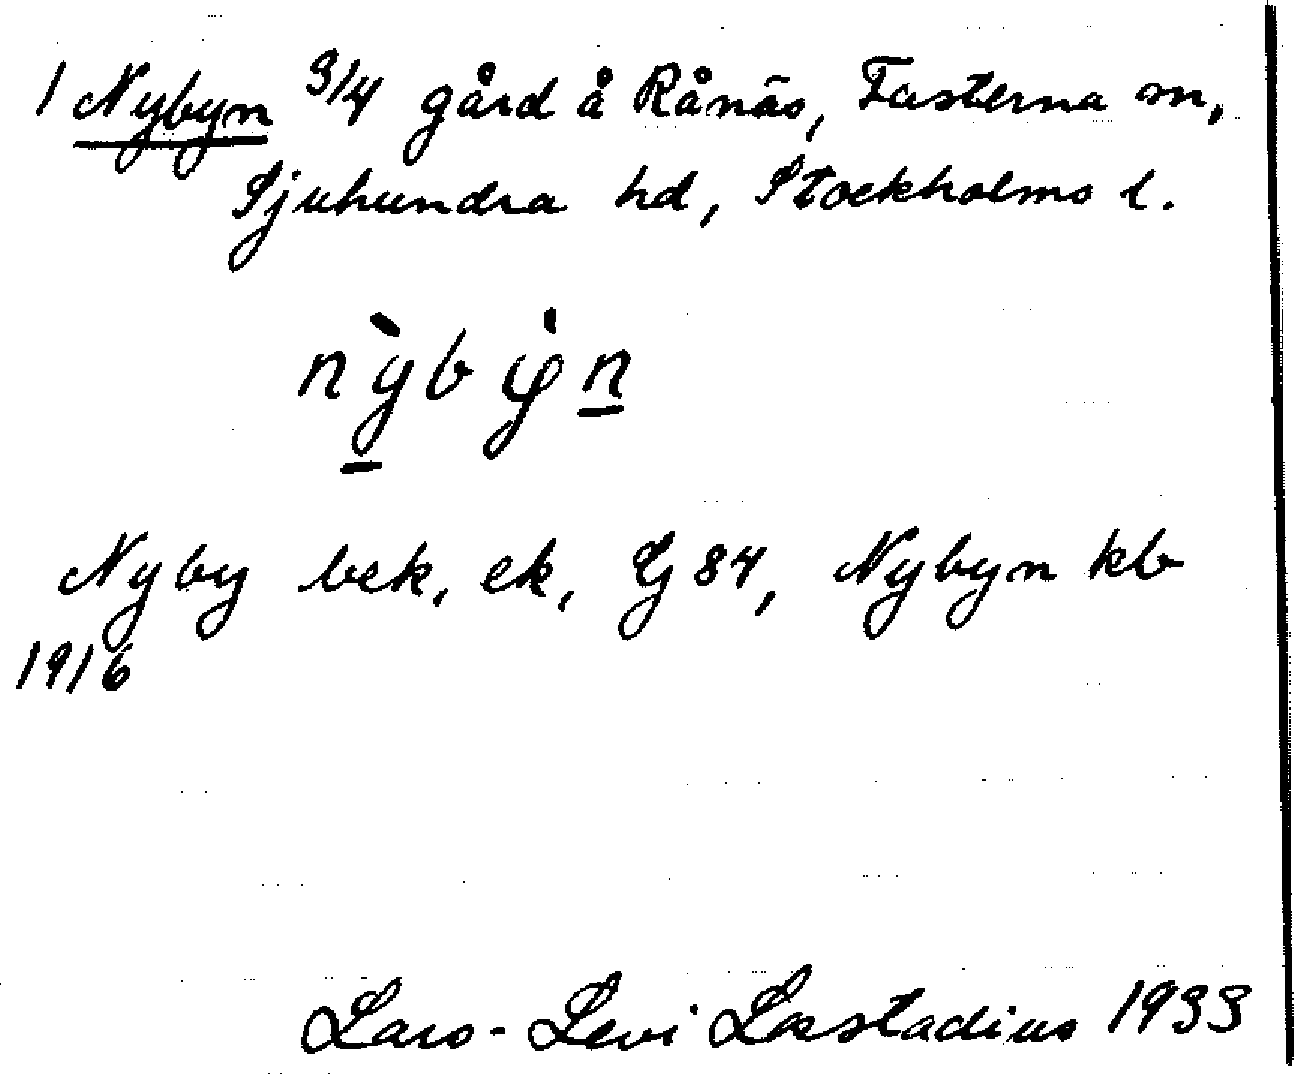 1 Nybyn 3/4 gård å Rånäs, Fasterna sn,
Sjuhundra hd, Stockholms l.
nỳbyn
Nyby bek, ek, Gj 84, Nybyn kb
1916
Lars-Levi Læstadius 1933